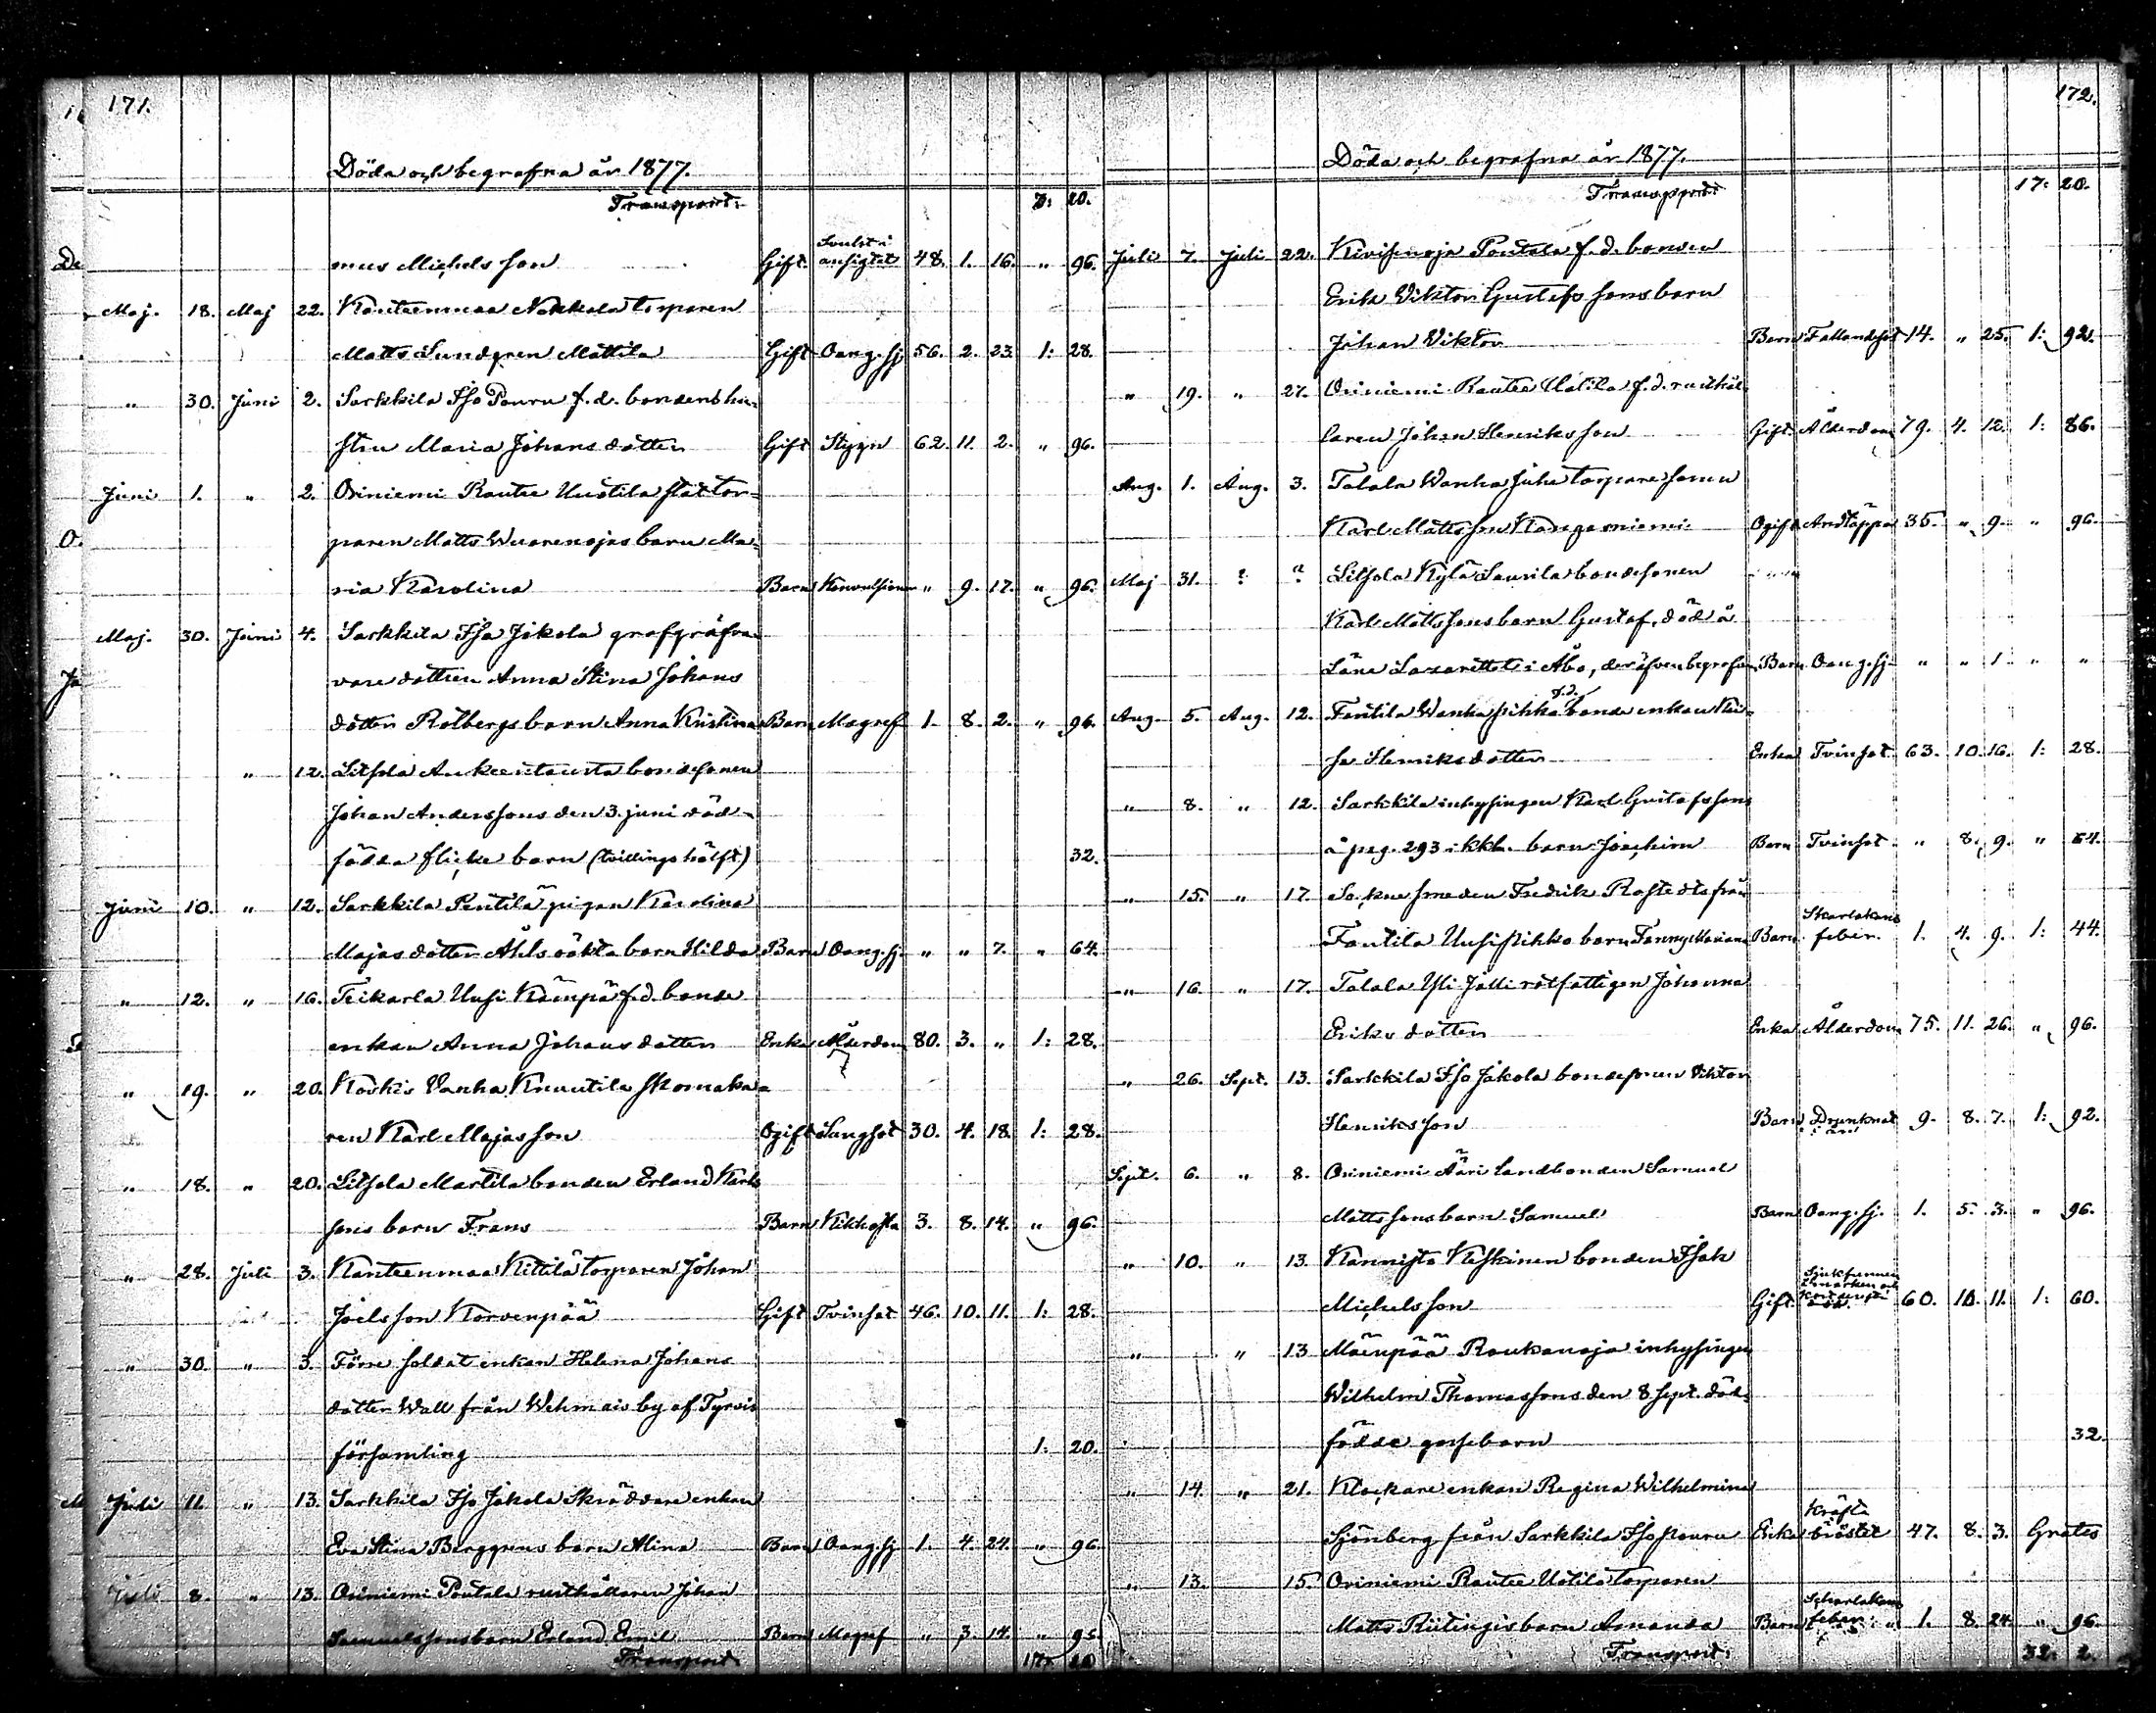 171.
Döda och begrafna år 1877.
Transport: 20.
mus Michelsson Gift Svulst i ansigtet 48. 1. 16. " 96.
Maj. 18. Maj 22. Kanteenmaa Nokkala torparen
Matts Lundgren Mattila Gift Oang. sj 56. 2. 23. 1: 28.
" 30. Juni 2. Sarkkila Iso Pouru f. d. bondens hu-
stru Maria Johansdotter Gift Styng 62. 11. 2. " 96.
Juni 1. " 2. Oriniemi Rautee Uustila stattor-
paren Matts Wuorenojas barn Ma-
ria Karolina Barn Konvulsioner " 9. 17. " 96.
Maj. 30. Juni 4. Sarkkila Iso Jskola grafgräfva-
re dottren Anna Stina Johans
dotter Rotbergs barn Anna Kristina Barn Magref 1. 8. 2. " 96.
" 12. Litsola bondesonen
Johan Anderssons den 3. juni död-
födda flicke barn (tvillings hälft) 32.
Juni 10. " 12. Sarkkila Pentilä pigan Karolina
Majasdotter Åhls oäkta barn Hilda Barn Oang. sj. " " 7. " 64.
" 12. " 16. Teikarla Uusi Kämpä f. d. bonde
enkan Anna Johansdotter Enka Ålderdom 80. 3. " 1: 28.
" 19. " 20. Koskis Vanha Knuutila skomaka-
ren Karl Majasson Ogift Lungsot 30. 4. 18. 1: 28.
" 18. " 20. Litsola Martila bonden Erland Karls
sons barn Frans Barn Kikhosta 3. 8. 14. " 96.
" 28. Juli 3. Kanteenmaa Kittilä torparen Johan
Joelsson Korvenpää Gift Tvinsot 46. 10. 11. 1: 28.
" 30. " 3. Förre soldat enkan Helena Johans
dotter Wall från Wehmais by af Tyrvis
församling 1: 20.
Juli 11. " 13. Sarkkila Iso Jskola Skräddare enkan
Eva Stina Berggrens barn Alina Barn Oang. sj 1. 4. 24. " 96.
Juli 8. " 13. Oriniemi Pentala rusthållaren Johan
Samuelssons barn Erland Emil Barn Magref " 3. 14. " 96.
Transport 17: 20
172.
Döda och begrafna år 1877.
Transport: 17: 20.
Juli 7. Juli 22. Kivisenoja Pontala f. d. bonden
Erik Viktor Gustafssons barn
Johan Viktor Barn Fallandesot 14. " 25. 1: 92.
" 19. " 27. Oriniemi Rautee Uotila f. d. rusthål-
laren Johan Henriksson Gift Ålderdom 79. 4. 12. 1: 86.
Aug. 1. Aug. 3. Talala Wanha Juha torpare sonen
Karl Mattsson Kangasniemi Ogift Andtäppa 35. " 9. " 96.
Maj 31. ? ? Litsola Kylä Laurila bondesonen
Karl Mattssons barn Gustaf, död å
Läns Lazarettet i Åbo, der äfven begrafven Barn Oang. sj. " " 1. " "
Aug. 5. Aug. 12. Fantila Wanha pihka f. d. bonde enkan
sa Henriksdotter Enka Tvinsot 63. 10. 16. 1: 28.
" 8. " 12. Sarkkila inhysingen Karl Gustafssons
å pag. 293 i kkb. barn Joachim Barn Tvinsot " 8. 9. " 64.
" 15. " 17. Sockne smeden Fredrik Rostedts från
Fantila Uusipihko barn Fanny Mariana Barn Skarlakans feber. 1. 4. 9. 1: 44.
" 16. " 17. Talala Yli Jalli rotfattigen Johanna
Eriksdotter Enka Ålderdom 75. 11. 26. " 96.
" 26. Sept. 13. Sarkkila Iso Jskola bondesonen Viktor
Henriksson Barn Drunknat i ån 9. 8. 7. 1: 92.
Sept. 6. " 8. Oriniemi Ääri landbonden Samuel
Mattssons barn Samuel Barn Oang. sj. 1. 5. 3. " 96.
" 10. " 13. Kannisto Keskinen bonden Isak
Michelsson Gift 60. 10. 11. 1: 60.
" " 13 Mäenpää Raukanoja inhysingen
Wilhelm Thomassons den 8 sept. död-
födde gossebarn 32.
" 14. " 21. Klockare enkan Regina Wilhelmina
Sjönberg från Sarkkila Iso pouru Enka Kräfta bröstet 47. 8. 3. Gratis
" 13. 15. Oriniemi Rautee Uotila torparen
Matts barn Amanda Barn Scharlakans feber 1. 8. 24. " 96.
Transport: 32: 2.